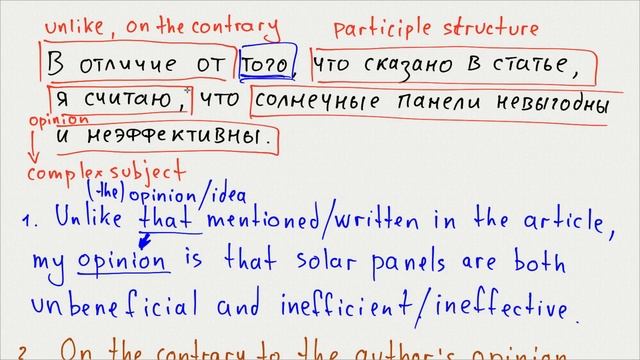 unlike, on the contrary participle structure
В отличие от того, что сказано в статье,
я считаю, что солнечные панели невыгодны
opinion
и неэффективны.
complex subject
(the) opinion/idea
1. Unlike that mentioned/written in the article,
my opinion is that solar panels are both
unbeneficial and inefficient/ineffective.
2. On the contrary to the author's opinion